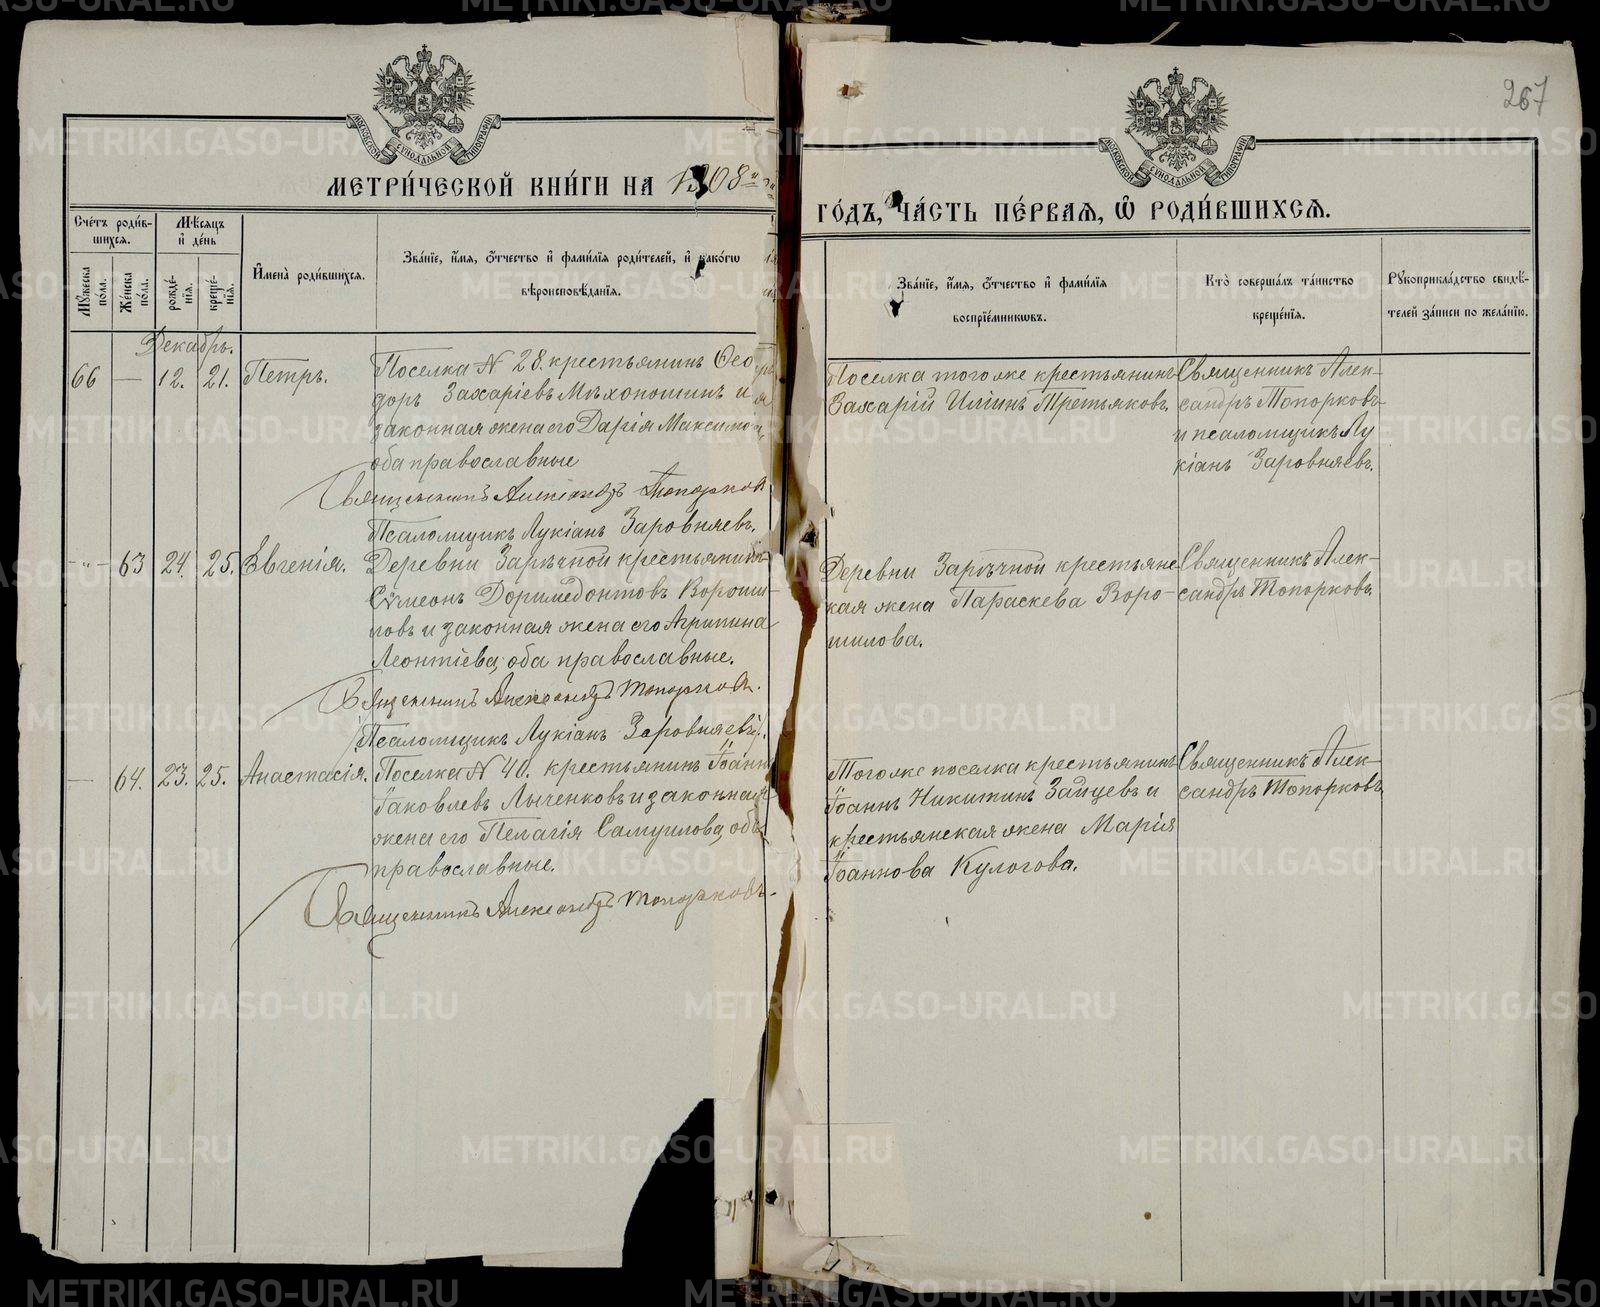 267
МОСКОВСКОЙ СѴНОДАЛЬНОЙ ТИПОГРАФІИ
МОСКОВСКОЙ СѴНОДАЛЬНОЙ ТИПОГРАФІИ
МЕТРИ́ЧЕСКОЙ КНИ́ГИ НА 1908
ГО́ДЪ, ЧА́СТЬ ПЕ́РВАЯ, Ѽ РОДИ́ВШИХСЯ.
Сче́тъ роди́в-
шихся.
Мѣ́сяцъ
и҆ де́нь
Мꙋ́жеска по́ла.
Же́нска по́ла.
рожде́-
нїѧ.
креще́-
нїѧ.
И҆мена̀ роди́вшихся.
Зва́нїе, и҆́мя, ѻ҆́тчество и҆ фами́лїя роди́телей, и҆ како́гѡ
вѣроисповѣ́данїя.
Зва́нїе, и҆́мя, ѻ҆́тчество и҆ фами́лїя
воспрїе́мникѡвъ.
Кто̀ соверша́лъ та́инство
креще́нїя.
Рꙋкоприкла́дство свидѣ́-
телей за́писи по жела́нїю.
Декабрь.
66 — 12. 21. Петръ.
Поселка N 28. крестьянинъ Ѳео
доръ Захаріевъ Мѣхоношинъ и
законная жена его Дарія Максимо
оба православные
Священникъ Александръ Топорков
Псаломщикъ Лукіанъ Заровняевъ.
Поселка того же крестьянинъ
Захарій Иліинъ Третьяковъ.
Священникъ Алек-
сандръ Топорковъ
и псаломщикъ Лу
кіанъ Заровняевъ.
-"- 63 24. 25. Евгенія.
Деревни Зарѣчной крестьянинъ
Сѵмеонъ Доримедонтовъ Вороши-
ловъ и законная жена его Агрипина
Леонтіева, оба православные.
Священникъ Александръ Топорков.
Псаломщикъ Лукіанъ Заровняевъ.
Деревни Зарѣчной крестьянс
кая жена Параскева Воро-
шилова.
Священникъ Алек-
сандръ Топорковъ.
— 64. 23. 25. Анастасія.
Поселка N 40. крестьянинъ Іоанн
Іаковлевъ Лыченковъ и законная
жена его Пелагія Самуилова, оба
православные.
Священникъ Александръ Топорковъ.
Того же поселка крестьянинъ
Іоаннъ Никитинъ Зайцевъ и
крестьянская жена Марія
Іоаннова Кулогова.
Священникъ Алек-
сандръ Топорковъ.
METRIKI.GASO-URAL.RU